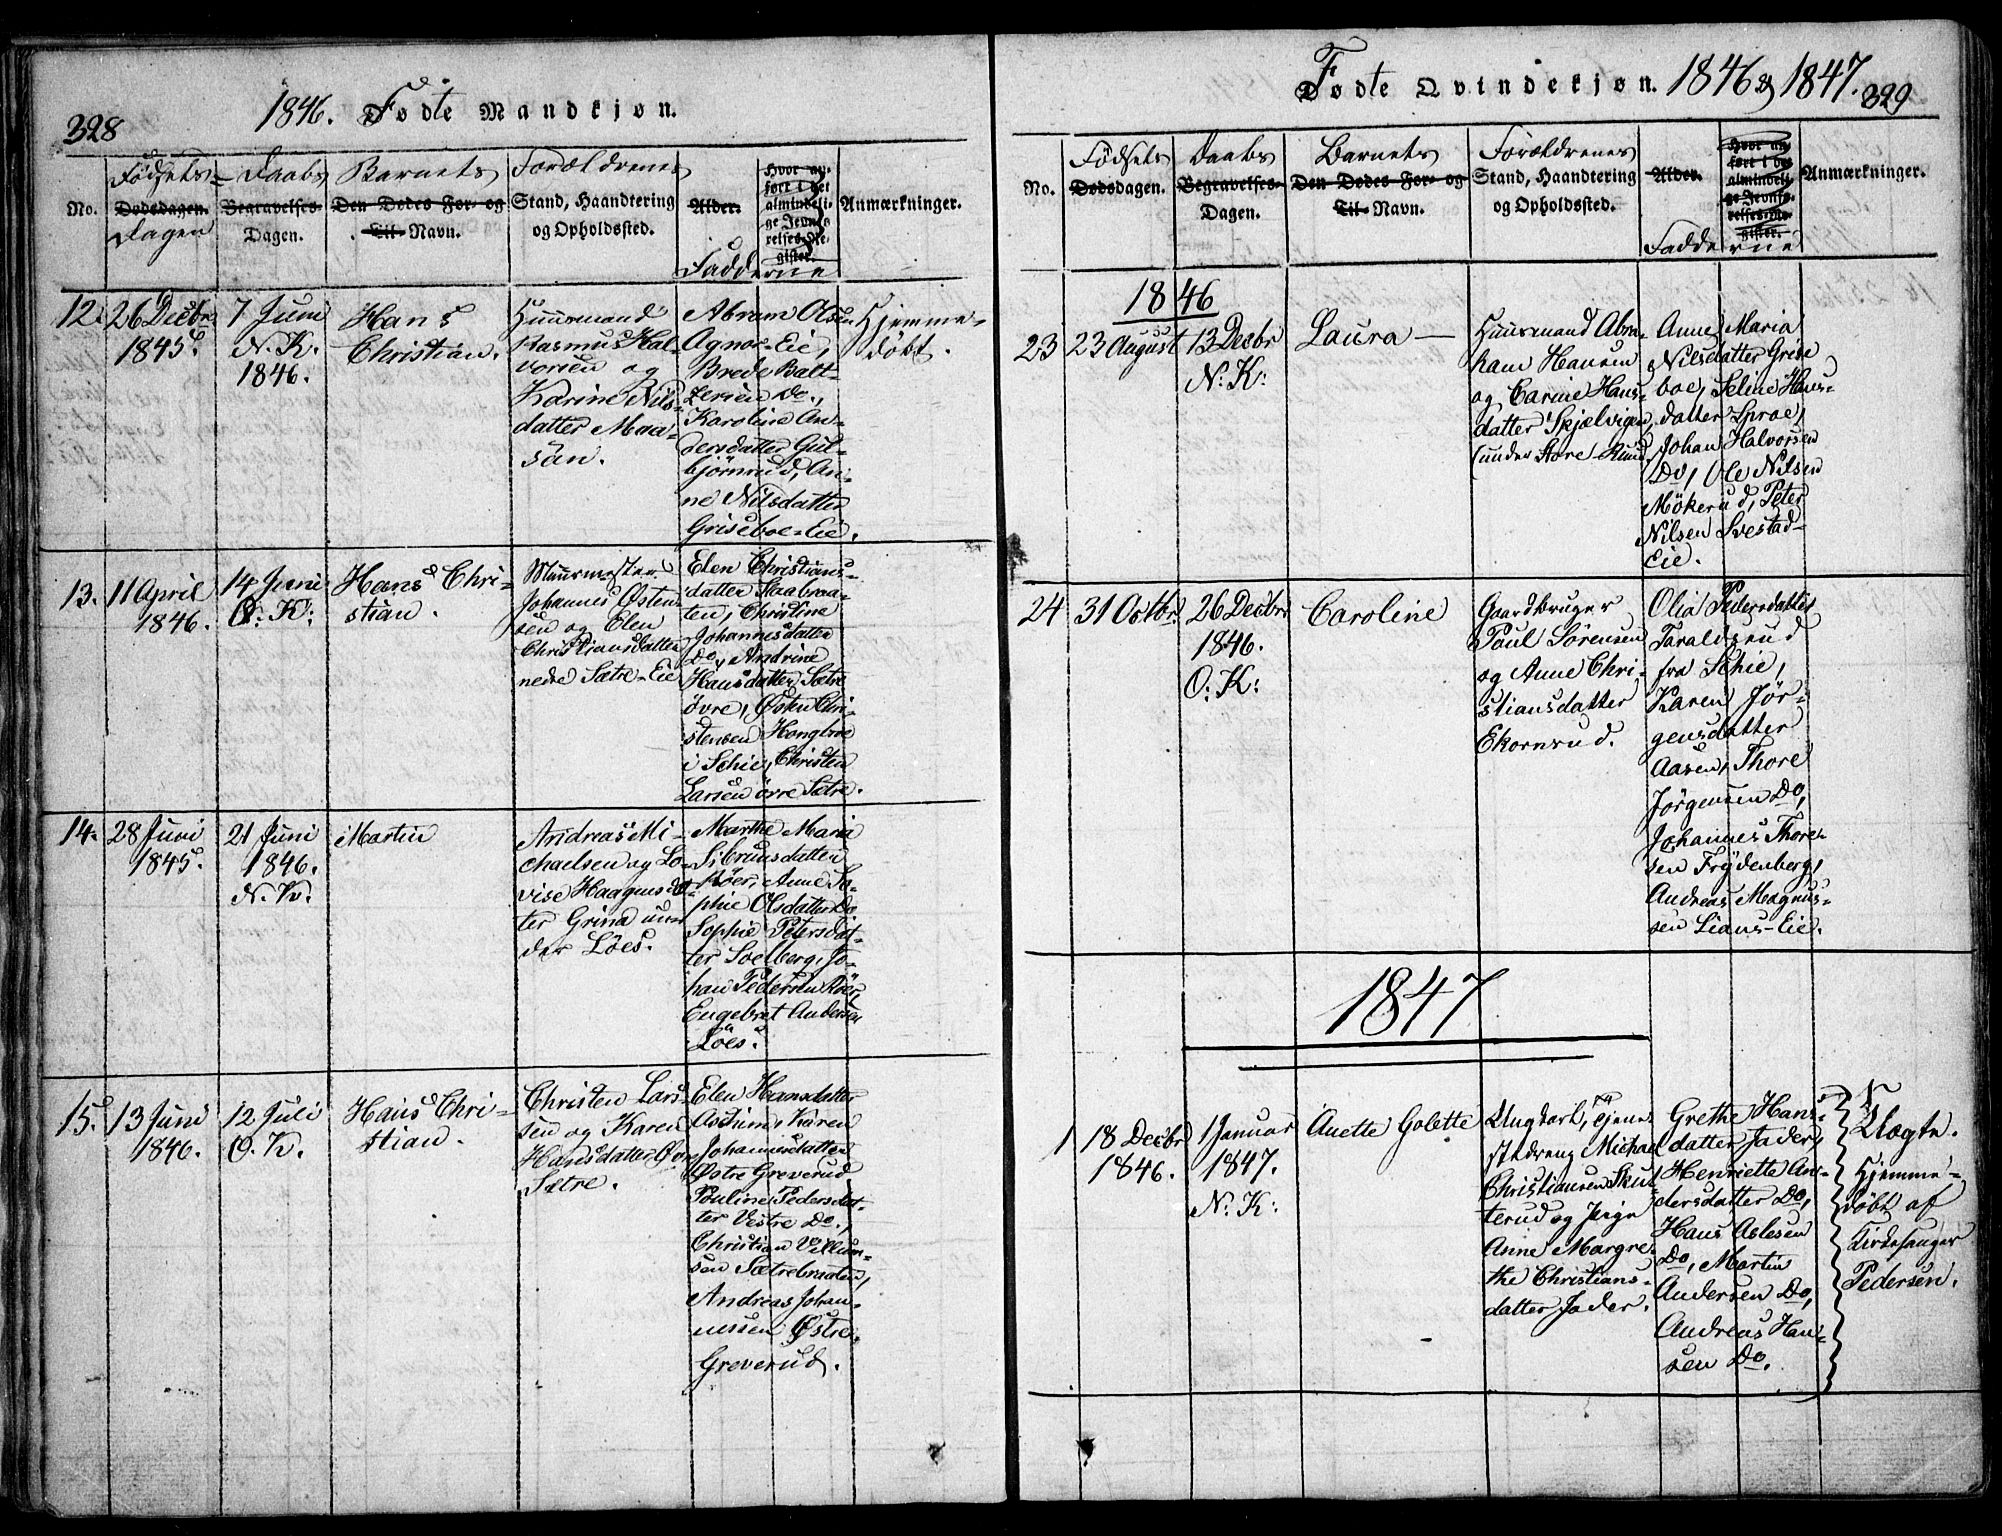 328
1846. Fødte Mandkjøn.
No.
Fødsels-
Dødsdagen.
Dagen
Daabs
Begravelses-
Dagen.
Barnets
Den Dødes For- og
Til-Navn.
Forældrenes
Stand, Haandtering
og Opholdssted.
Alder.
Hvor an-
ført i det
almindeli-
ge Jevnfø-
relses-Re-
gister.
Fadderne
Anmærkninger.
12.
26 Decbr
1845.
7 Juni
N. K.
1846.
Hans
Christian.
Huusmand
Rasmus Hal-
vorsen og
Karine Nils-
datter Maa-
sån.
Abram Olsen
Agnor-Eie,
Brede Balt-
zersen Do,
Karoline An-
dersdatter Gul-
bjørnrud, An-
ne Nilsdatter
Griseboe-Eie.
Hjemme-
døbt.
13.
11 April
1846.
14 Juni
O. K:
Hans Chri-
stian.
Muurmester
Johannes Østen-
sen og Elen
Christiansdatter
nedre Sætre-Eie
Elen Christians-
datter Skabraa-
ten, Christine
Johannesdatter
Do, Andrine
Hansdatter Sætre
øvre, Østen Chri-
stensen Hongbroe
i Schie, Christen
Larsen øvre Sætre.
14.
28 Juni
1845.
21 Juni
1846.
N. K.
Martin
Andreas Mi-
chaelsen og Lo-
vise Haagensdat-
ter Grina un-
der Löes.
Marthe Maria
Sibrunsdatter
Röer, Anne So-
phie Olsdatter Do
Sophie Petersdat-
ter Soelberg, Jo-
han Pedersen Röer,
Engebret Andersen
Löes.
15.
13 Juni
1846.
12 Juli
O. K.
Hans Chri-
stian.
Christen Lars-
sen og Karen
Hansdatter Øvre
Sætre.
Elen Hansdatter
Aschim, Karen
Johannesdatter
Østre Greverud,
Pauline Pedersdat-
ter Vestre Do,
Christian Villum-
sen Sætrebraaten,
Andreas Johan-
nessen Østre-
Greverud.
Fødte Qvindekjøn. 1846 & 1847.
329
No.
Fødsels
Dødsdagen.
Daabs
Begravelses-
Dagen.
Barnets
Den Dødes For- og
Til-Navn.
Forældrenes
Stand, Haandtering
og Opholdssted.
Alder.
Hvor an-
ført i det
almindeli-
ge Jevnfø-
relses-Re-
gister.
Fadderne
Anmærkninger.
1846
23
23 August
13 Decbr
N: K:
Laura —
Huusmand Abra-
ham Hansen
og Carine Hans-
datter Skjælvigen,
(under Store-Ruud
Anne Maria
Nilsdatter Grise
boe, Seline Hans-
datter Sproe,
Johan Halvorsen
Do, Ole Nilsen
Mökerud, Peter
Nilsen Svestad-
Eie.
24
31 Octbr.
26 Decbr
1846.
O: K:
Caroline
Gaardbruger
Paul Sørensen
og Anne Chri-
stiansdatter
Ekornrud.
Olia Pedersdatter
Taraldsrud
fra Schie,
Karen Jør-
gensdatter
Aasen, Thore
Jørgensen Do,
Johannes Thore-
sen Frydenberg,
Andreas Magnus-
sen Lians-Eie.
1847
1
18 Decbr
1846.
1 Januar
1847.
N. K:
Anette Golette
Ungkarl, tjene
stedreng Michael
Christiansen Sku-
terud og Pige
Anne Margre-
the Christians-
datter Jader.
Grethe Hans-
datter Jader,
Henriette An-
dersdatter Do,
Hans Aslesen
Do, Martin
Andersen Do,
Andreas Han-
sen Do.
Uægte.
Hjemme-
døbt af
Kirkesanger
Pedersen.